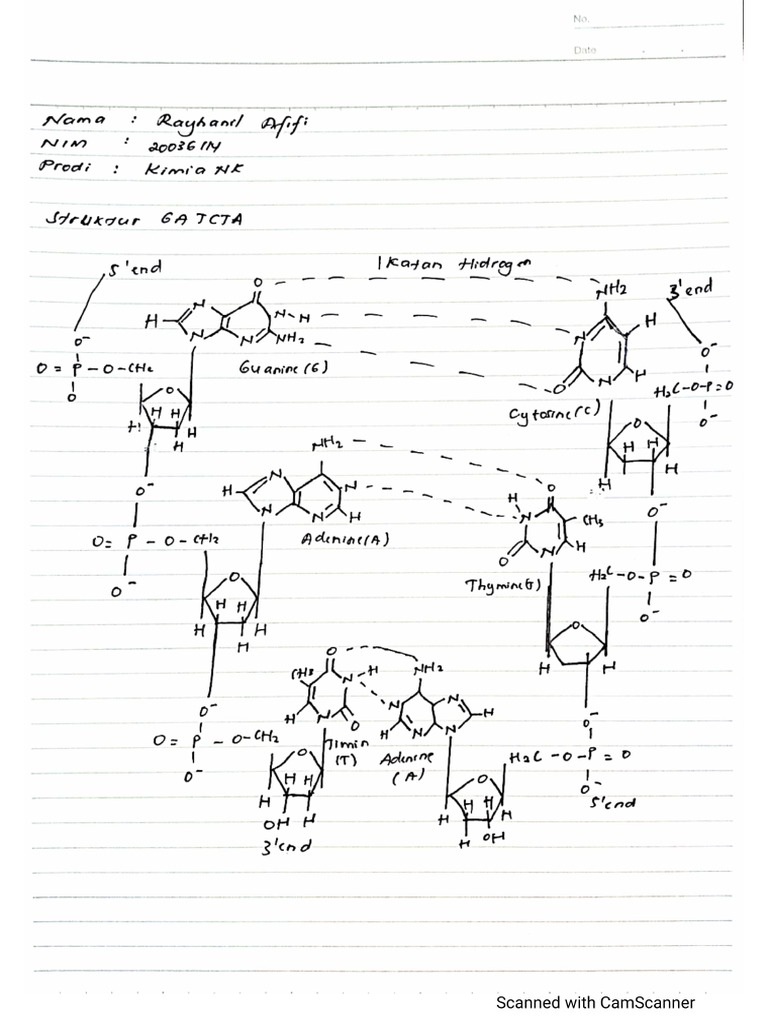 No.
Date
Nama : Rayhanil Afifi
NIM : 20036114
Prodi : Kimia NK
Struktur GATCTA
5'end
Ikatan Hidrogen
3'end
O
NH2
H
N
N
N
N
H
NH2
Guanine (G)
O-
O = P - O - CH2
O
O
H H
H H
H
N
H
H
O
N
Cytosine (C)
O-
H2C-O-P=O
O-
O
H H
H
H
O-
NH2
N
N
H
N
N
H
Adenine (A)
O
H
N
CH3
O
N
H
Thymine (T)
O-
O= P - O - CH2
O-
O
H H
H H
H
O-
H2C-O-P=O
O-
O
H
H
O-
O
CH3
N-H
H
N
O
Timin
(T)
NH2
N
N
H
N
N
H
Adenine
(A)
O-
O= P - O-CH2
O-
O
H H
H H
OH H
3'end
O-
H2C-O-P=O
O-
5'end
O
H H
H H
H OH
Scanned with CamScanner